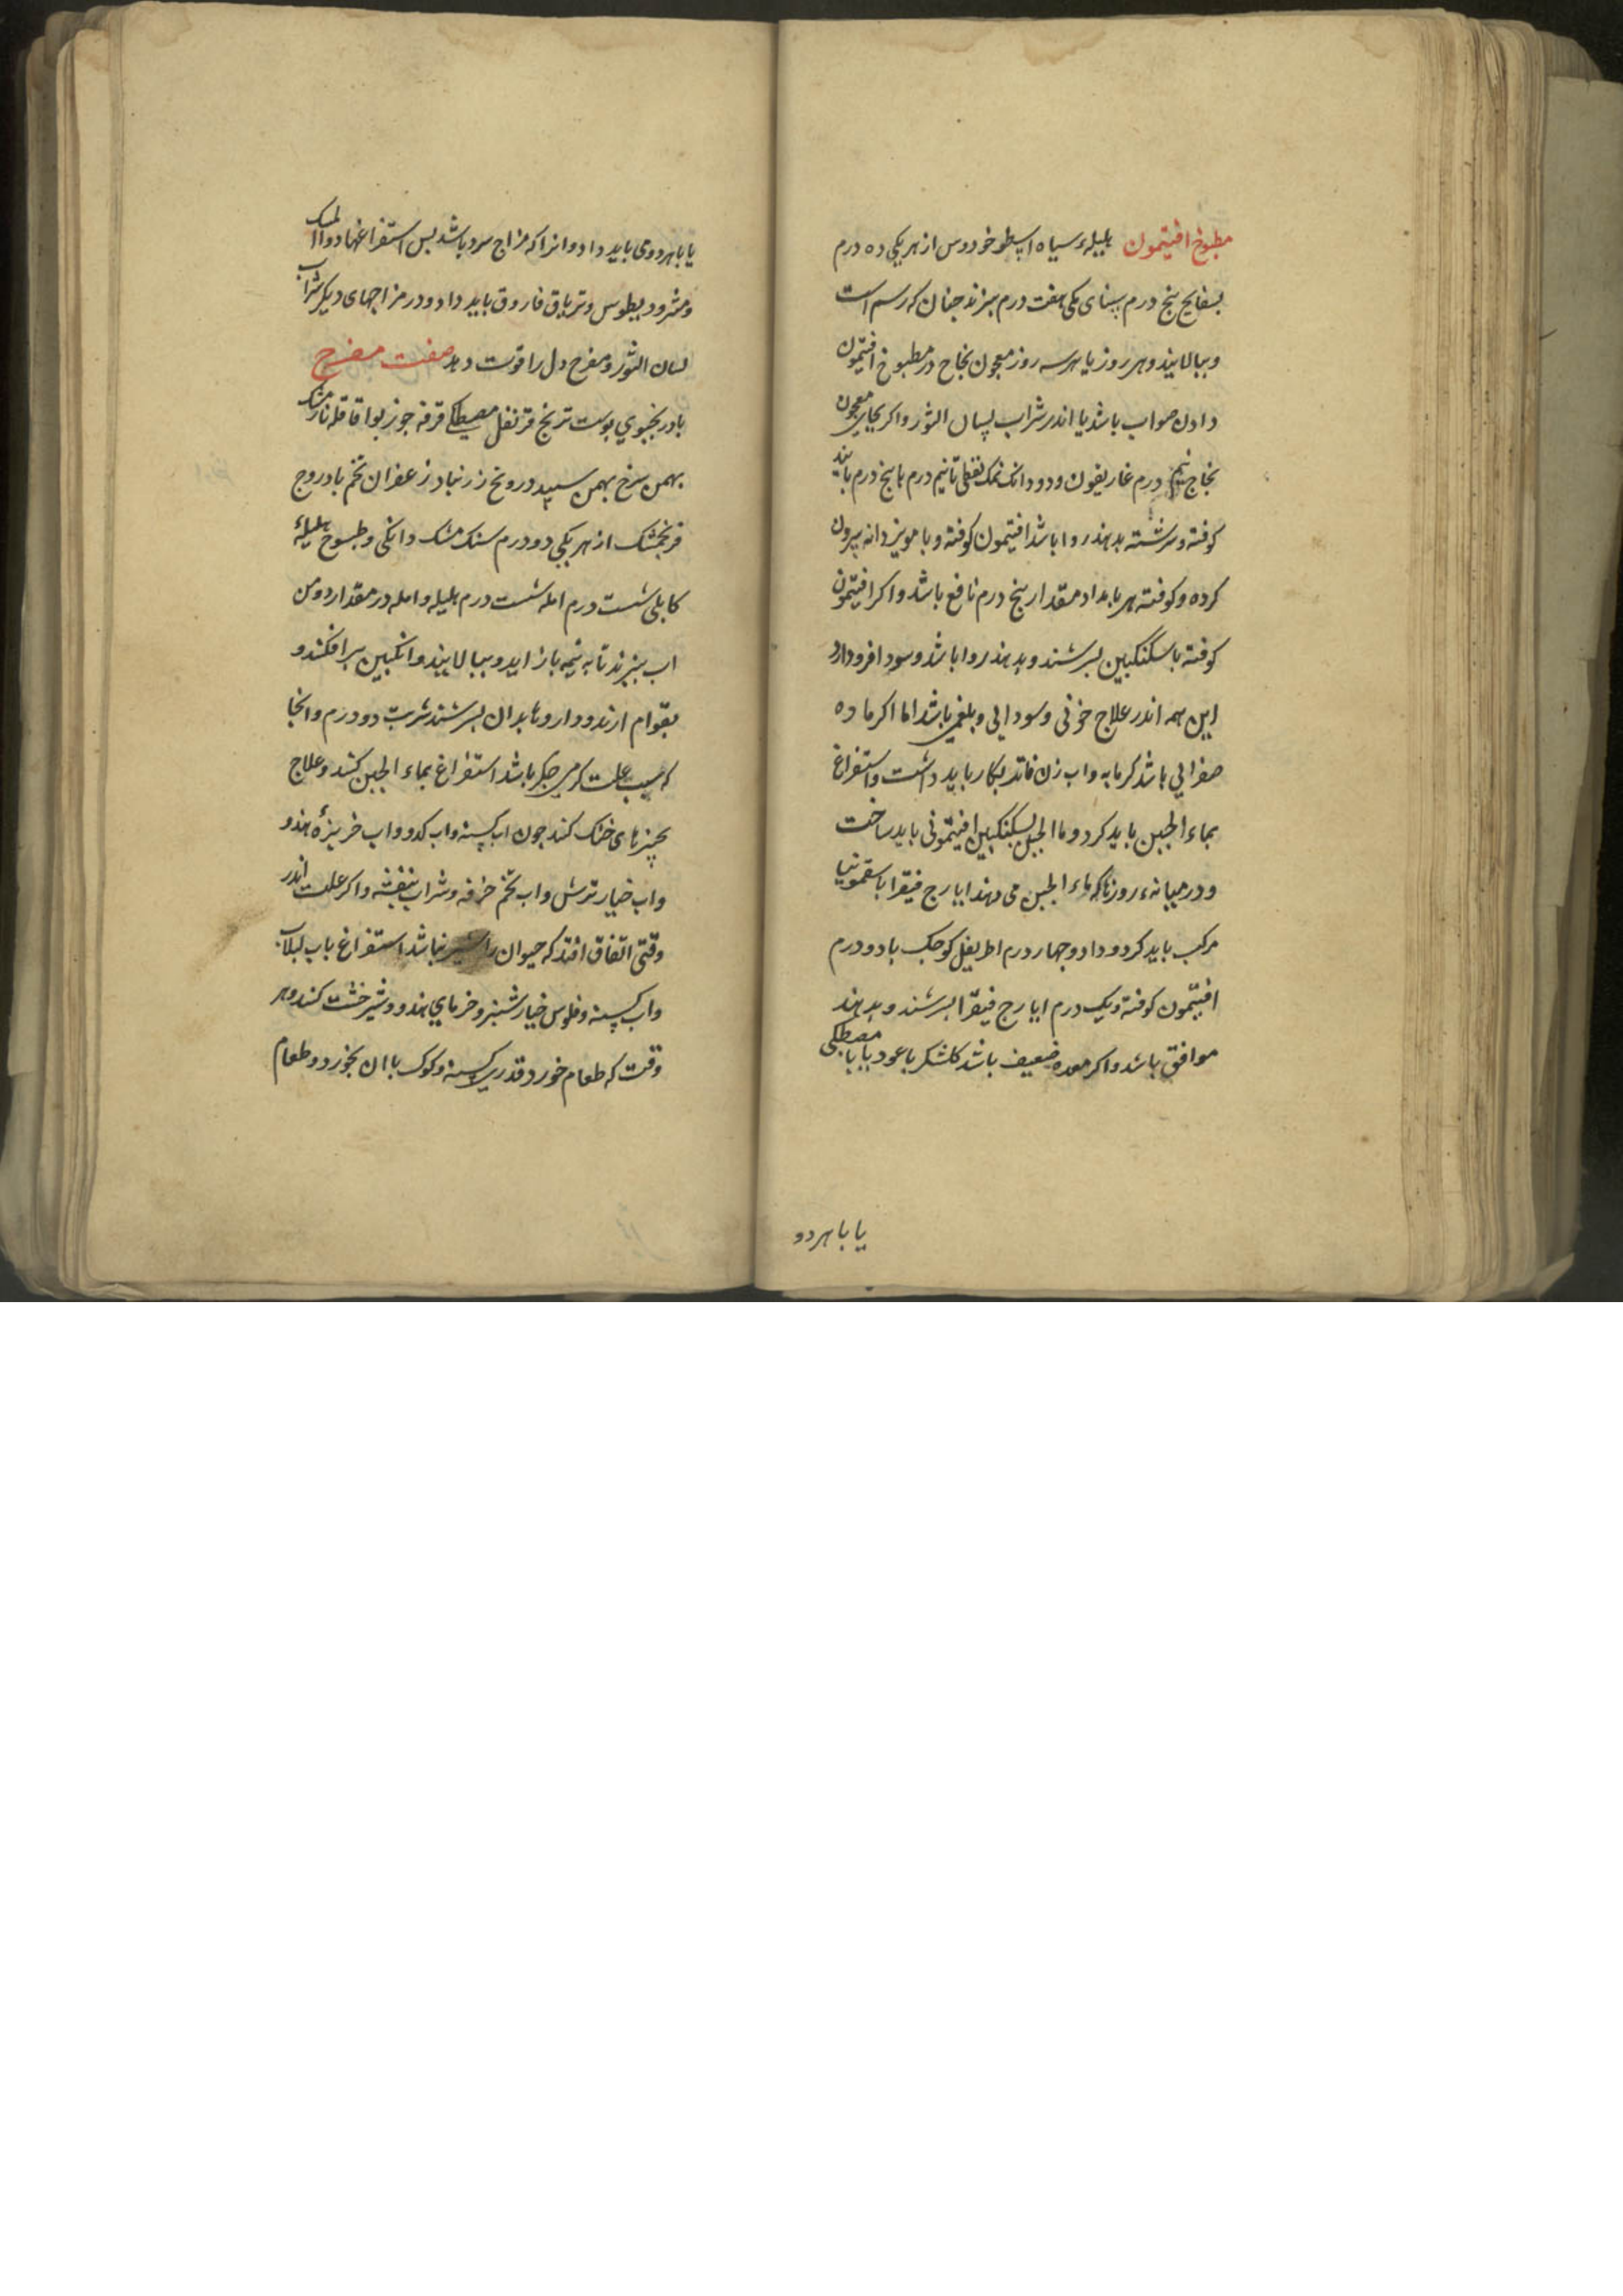 مطبوخ افیتمون هلیلهٔ سیاه اسطوخودوس از هر یکی ده درم
بسفایج پنج درم سنای مکی هفت درم بپزند جنان که رسم است
و ببالایند و هر روز یا هر سه روز معجون نجاح در مطبوخ افیتمون
دادن صواب باشد یا اندر شراب لسان الثور و اکر بجای معجون
نجاح نیم درم غاریقون و دو دانک نمک نفطی تا نیم درم با پنج درم
کوفته و سرشته بدهند روا باشد افیتمون کوفته و با مویز دانه بیرون
کرده و کوفته هر بامداد مقدار پنج درم نافع باشد و اکر افیتمون
کوفته با سکنکبین بسرشند و بدهند روا باشد و سود افزو دارد
این همه اندر علاج خونی و سودایی و بلغمی باشد اما اکر ماده
صفرایی باشد کرمابه و اب زن فاتر بکار باید داشت و استفراغ
بماء الجبن باید کرد و ما الجبن بسکنکبین افیتمونی باید ساخت
و در میانهء روزها که ماء الجبن می دهند ایارج فیقرا با سقمونیا
مرکب باید کرد و داد و جهار درم اطریفل کوجک با دو درم
افیتمون کوفته و یک درم ایارج فیقرا بسرشند و بدهند
موافق باشد و اکر معده ضعیف باشد کلشکر با عود یا با مصطکی
یا با هر دو
یا با هر دو می باید داد و انرا که مزاج سرد باشد بس استفراغها دواالمسک
و مثرودیطوس و تریاق فاروق باید داد و در مزاجهای دیکر شراب
لسان الثور و مفرح دل را قوت دهد صفت مفرح
بادرنجبوی بوست ترنج قرنفل مصطکی قرفه جوز بوا قاقله نارمشک
بهمن سرخ بهمن سپید درونج زرنباد زعفران تخم بادروج
فرنجمشک از هر یکی دو درم سنک مشک دانکی و طسوج هلیلهٔ
کابلی شست درم امله شست درم هلیله و امله در مقدار دو من
اب بپزند تا به نیمه باز اید و ببالایند و انکبین برافکنند و
بقوام ارند و داروها بدان بسرشند شربت دو درم و انجا
که سبب علت کرمی جکر باشد استفراغ بماء الجبن کنند و علاج
بجیزهای خنک کنند جون اب کسنه و اب کدو و اب خربزهٔ هندو
و اب خیار ترش و اب تخم خرفه و شراب بنفشه و اکر علت اندر
وقتی اتفاق افتد که حیوان را شیر نباشد استفراغ باب لبلاب
و اب کسنه و فلوس خیارشنبر و خرمای هندو و شیرخشت کنند و هر
وقت که طعام خورد قدری کسنه و کوک با ان بخورد و طعام